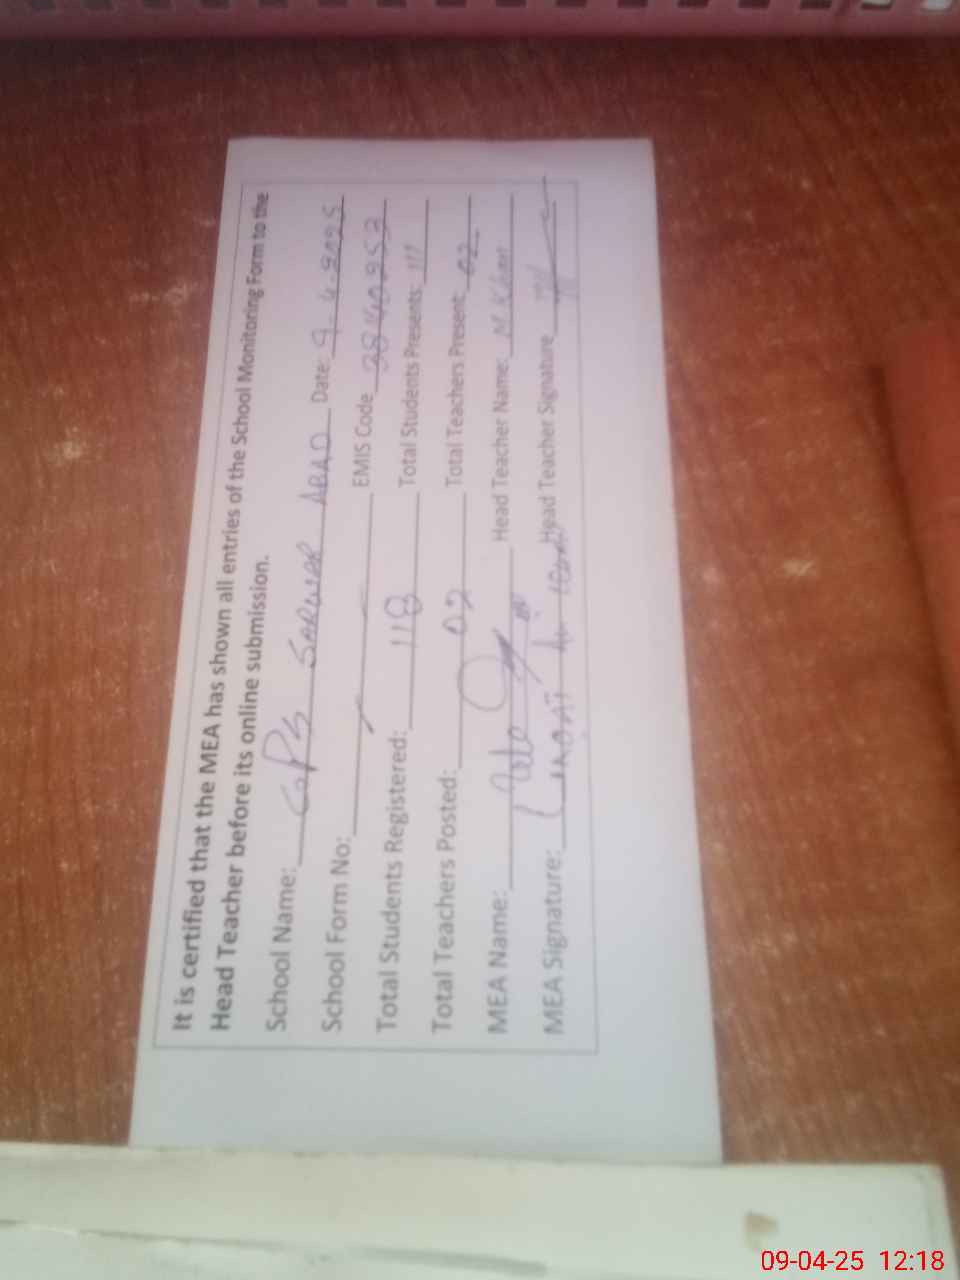 It is certified that the MEA has shown all entries of the School Monitoring Form to the
Head Teacher before its online submission.
School Name: GPS SARWAR ABAD Date: 9-4-2025
School Form No: EMIS Code 38410253
Total Students Registered: 118 Total Students Presents: 111
Total Teachers Posted: 02 Total Teachers Present: 02
MEA Name: Head Teacher Name: M. Khan
MEA Signature: Head Teacher Signature
09-04-25 12:18